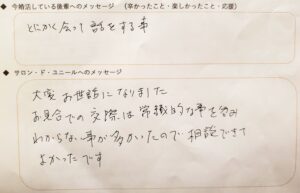 ◆ 今婚活している後輩へのメッセージ (辛かったこと・楽しかったこと・応援)
とにかく会って話をする事
◆ サロン・ド・ユニールへのメッセージ
大変お世話になりました
お見合での交際は常識的な事を含み
わからない事が多かったので相談できて
よかったです